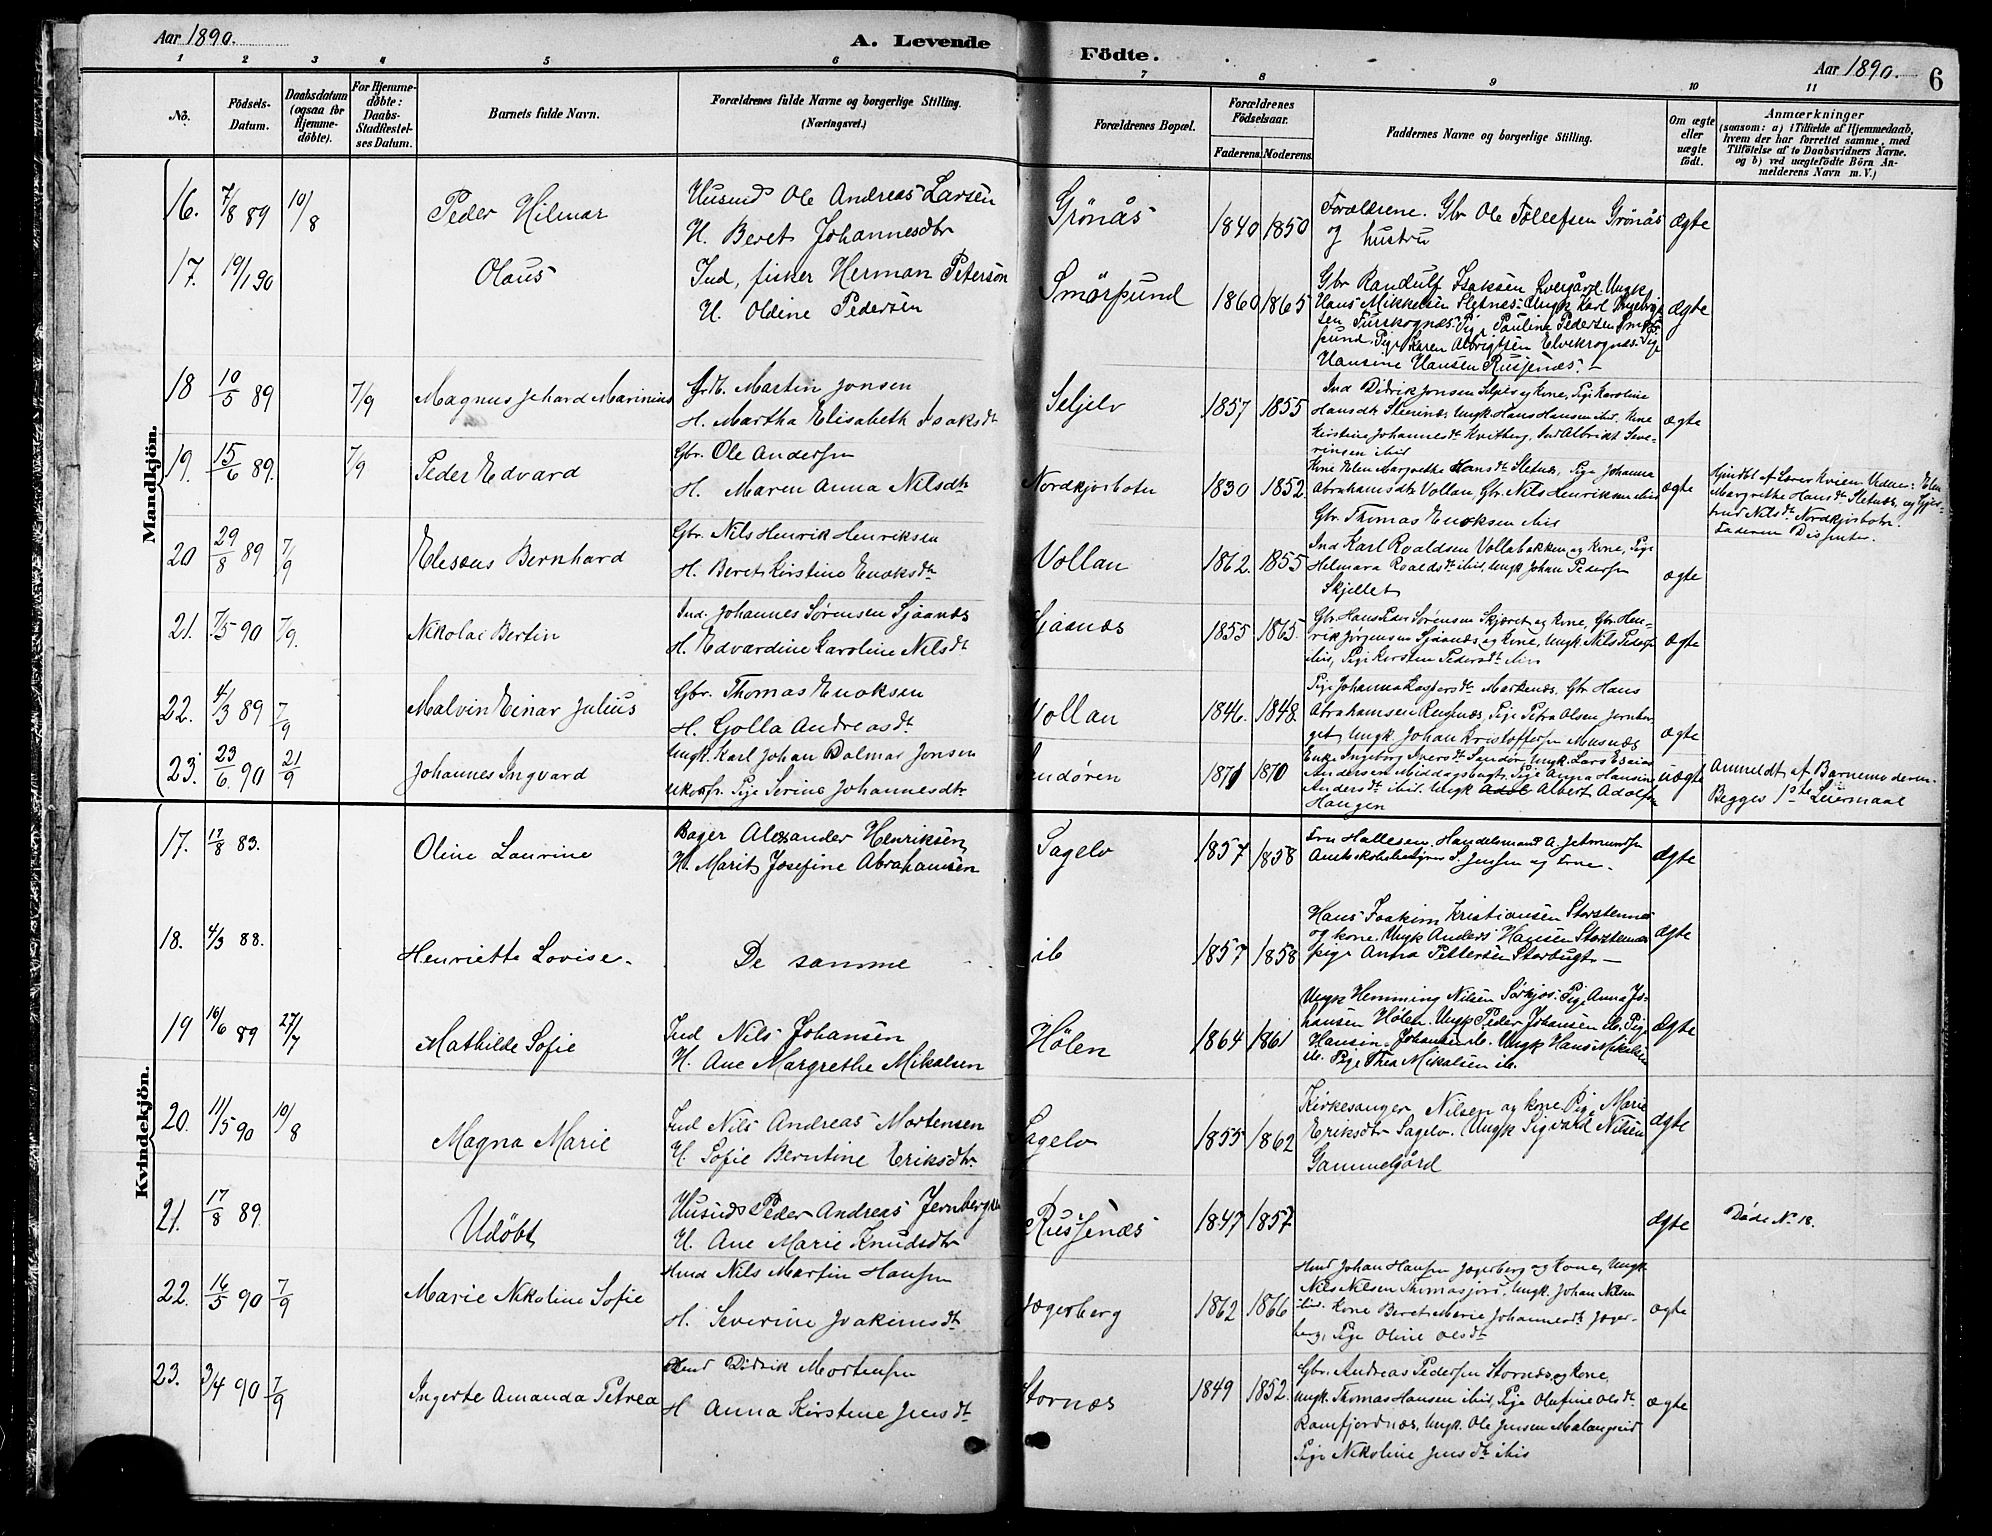 Aar 1890.
A. Levende Födte.
Aar 1890.
6
1 2 3 4 5 6 7 8 9 10 11
No.
Födsels-Datum.
Daabsdatum (ogsaa for Hjemmedøbte).
For Hjemmedøbte: Daabs-Stadfæstelses Datum.
Barnets fulde Navn.
Forældrenes fulde Navne og borgerlige Stilling.
(Næringsvei.)
Forældrenes Bopæl.
Forældrenes Födselsaar.
Faderens. Moderens.
Faddernes Navne og borgerlige Stilling.
Om ægte eller uægte født.
Anmærkninger
(saasom: a) i Tilfælde af Hjemmedaab,
hvem der har forrettet samme, med
Tilføielse af to Daabsvidners Navne.
og b) ved uægtefödte Börn An-
melderens Navn m. V.)
Mandkjön.
16. 7/8 89 10/8 Peder Hilmar
Husmd Ole Andreas Larsen
H. Beret Johannesdtr
Grönås 1840 1850
Forældrene. Gbr Ole Tollefsen Grönås
og hustru
ægte
17. 19/1 90 Olaus
Ind, fisker Herman Peterson
H. Oldine Pedersen
Smörsund 1860 1865
Gbr Randulf Isaksen Ungk
Hans Mikkelsen Sletnes. Ungk Karl
Pige Pauline Pedersen
sund. Pige Karen Albrigtsen
Hansine Hansen Russenes.
ægte
18 10/5 89 7/9 Magnus Jehard Marinius
Martin Jonsen
H. Martha Elisabeth Isaksdt
Seljelv 1857 1855
Ind Didrik Jonsen Seljelv og Kone, Pige Karoline
Hansdt Ungk. Hans Hansen ibid. Kone
Kirstine Johannesdt Kvitberg, Ind Albrikt Seve-
rinsen ibid
ægte
19. 15/6 89. 7/9 Peder Edvard
Gbr. Ole Andersen
H. Maren Anna Nilsdtr
Nordkjosbotn 1830 1852.
Kone Elen Margrethe Hansdt Sletnes, Pige Johanna
Abrahamsdtr Vollan Gbr. Nils Henriksen ibid
Gbr. Thomas Enoksen ibid
ægte
Hjmdbt af Lærer Kvien Vidner: Elen
Margrethe Hansdt Sletnes, og Gjer-
trud Nilsdt Nordkjosbotn.
Faderen Dissenter.
20 29/8 89 7/9 Eliseus Bernhard
Gbr. Nils Henrik Henriksen
H. Beret Kirstine Enoksdtr
Vollan 1862. 1855
Ind Karl Roaldsen Vollabakken og Kone, Pige
Hilmara Roaldsdt ibid, Ungk Johan Pedersen
Skjellet
ægte
21. 7/5 90 7/9. Nikolai Bertin
Ind. Johannes Sørensen Sjaanes
H. Edvardine Karoline Nilsdt
Sjaanes 1855 1865.
Gbr. Hans Peder Sørensen Skjæret og Kone, Gbr. Hen-
rik Jørgensen Sjaanes og Kone, Ungk. Nils Pedersen
ibid, Pige Kirsten Pedersdt ibid
ægte
22. 4/3 89 7/9 Malvin Einar Julius
Gbr. Thomas Enoksen
H. Golla Andreasdt
Vollan 1846. 1848.
Pige Johanna Kaspersdt Markenes, Gbr Hans
Abrahamsen Russenes, Pige Petra Olsen Jernber-
get, Ungk. Johan Kristoffersen Mosnes
ægte
23. 23/6 90 21/9 Johannes Ingvard
Ungk. Karl Johan Dalmar Jonsen
Ukonfr. Pige Serine Johannesdtr
Sandören 1871 1870
Enke Ingeborg Iversdt Sandør, Ungk. Lars Esaias
Andersen Middagsbugt, Pige Anna Hansine
Andersdt ibid. Ungk Albert Adolfsen
Haugen
uægte
Anmeldt af Barnemoderen
Begges 1ste Leiermaal
Kvindekjön.
17. 17/8 83. Oline Laurine
Bager Alexander Henriksen,
H. Marit Josefine Abrahamsen
Sagelv 1857 1858
Fru Hallesen. Handelsmand A. Jetmundsen
Amtsskolebestyrer S. Jensen og Frue.
ægte
18. 4/3 88. Henriette Lovise.
De samme
ib 1857 1858
Hans Joakim Kristiansen Storstennes
og kone. Ungk Anders Hansen Storstennes
pige Anna Pettersen Storbugt
ægte
19 16/6 89 27/7 Mathilde Sofie
Ind Nils Johansen
H. Ane Margrethe Mikalsen
Hölen 1864 1861
Ungk Hemming Nilsen Sørkjos. Pige Anna Jo-
hansen Hölen. Ungk Peder Johansen ib. Pige
Hansine Johansen ib. Ungk Hans Mikalsen
ib. Pige Thea Mikalsen ib.
ægte
20. 11/5 90 10/8 Magna Marie
Ind Nils Andreas Mortensen
H. Sofie Berntine Eriksdtr
Sagelv 1855 1862
Kirkesanger Nilsen og kone Pige Marie
Eriksdtr Sagelv. Ungk Sigvard Nilsen
Gammelgård
ægte
21. 17/8 89 Udöbt
Husmd Peder Andreas Jernberg
H. Ane Marie Knudsdtr
Russenæs 1847 1857
ægte
Døde No. 18.
22. 16/5 90 7/9 Marie Nikoline Sofie
Hmd Nils Martin Hansen
H. Severine Joakimsdt
Jægerberg 1862 1866
Hmd Johan Hansen Jægerberg og Kone, Ungk
Nils Nilsen Thomasjord, Ungk. Johan Nilsen
ibid. Kone Beret Marie Johannesdt Jæger-
berg, Pige Oline Olsdt
ægte
23. 3/4 90 7/9 Ingerte Amanda Petrea
Hmd Didrik Mortensen
H Anna Kirstine Jensdt
Stornes 1849 1852.
Gbr. Andreas Pedersen Stornes og Kone,
Ungk. Thomas Hansen ibid, Pige Olufine Olsdt
Ramfjordnes, Ungk. Ole Jensen Malangseid
Pige Nikoline Jensdt ibid
ægte